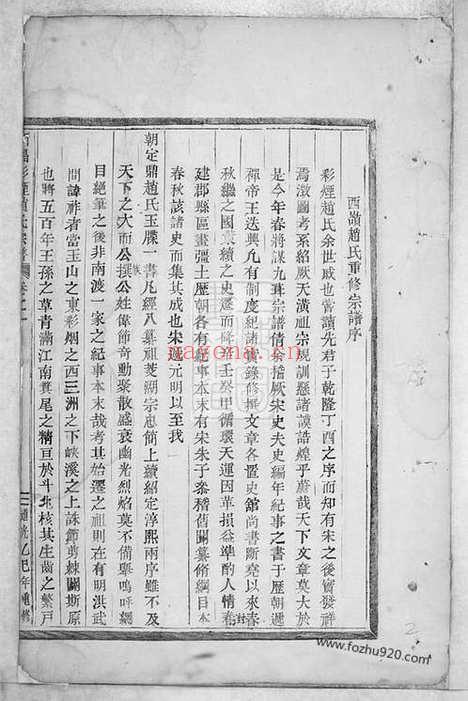 西嶺趙氏重修宗譜序
彩煙趙氏余世戚也嘗讀先君于乾隆丁酉之序而知有朱之後實發祥
焉溦闢考系紹厥天潢祖宗規訓懸諸謨誥煌乎蔚哉天下文章莫大於
是今年春將謀九耳宗譜倩余楷厥宋史夫史編年紀事之書于歷朝遞
禪帝王迭興凡有制度紀諸實錄修撰文章各置史館尚書斷堯以來春
秋繼之國策續之史遷而降辛壬癸甲循環天運因革損益準酌人情春
建郡縣區畫彊土歷朝各有紀事本末有宋朱子叅稽舊聞纂脩綱目本
春秋該諸史而集其成也宋迄元明以至我
朝定鼎趙氏玉牒一書凡經八纂祖菱湖宗忠簡上續紹定淳熙兩序雖不及
天下之大而公撰公姓偉節奇動聚散盛衰幽光烈焰莫不備舉嗚呼綱
目絕筆之後非南渡一家之紀事本末哉考其始遷之祖則在有明洪武
間諱祚者當玉山之東彩烟之西三洲之下峽溪之上誅節剪棘闢斯原
也將五百年王孫之草青滿江南箕尾之精亘於斗北核其生齒之繁戶
道光乙巳年重修
nayona.cn
www.fozhu920.com